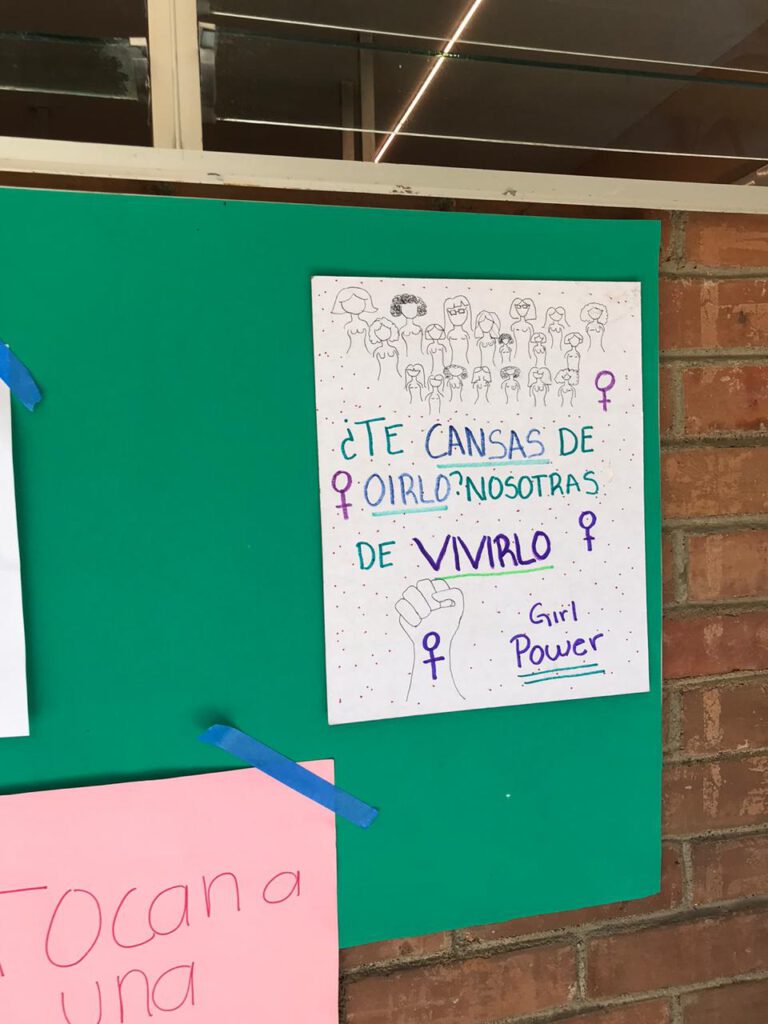 ¿TE CANSAS DE
OIRLO? NOSOTRAS
DE VIVIRLO
Girl
Power
Tocan a
una